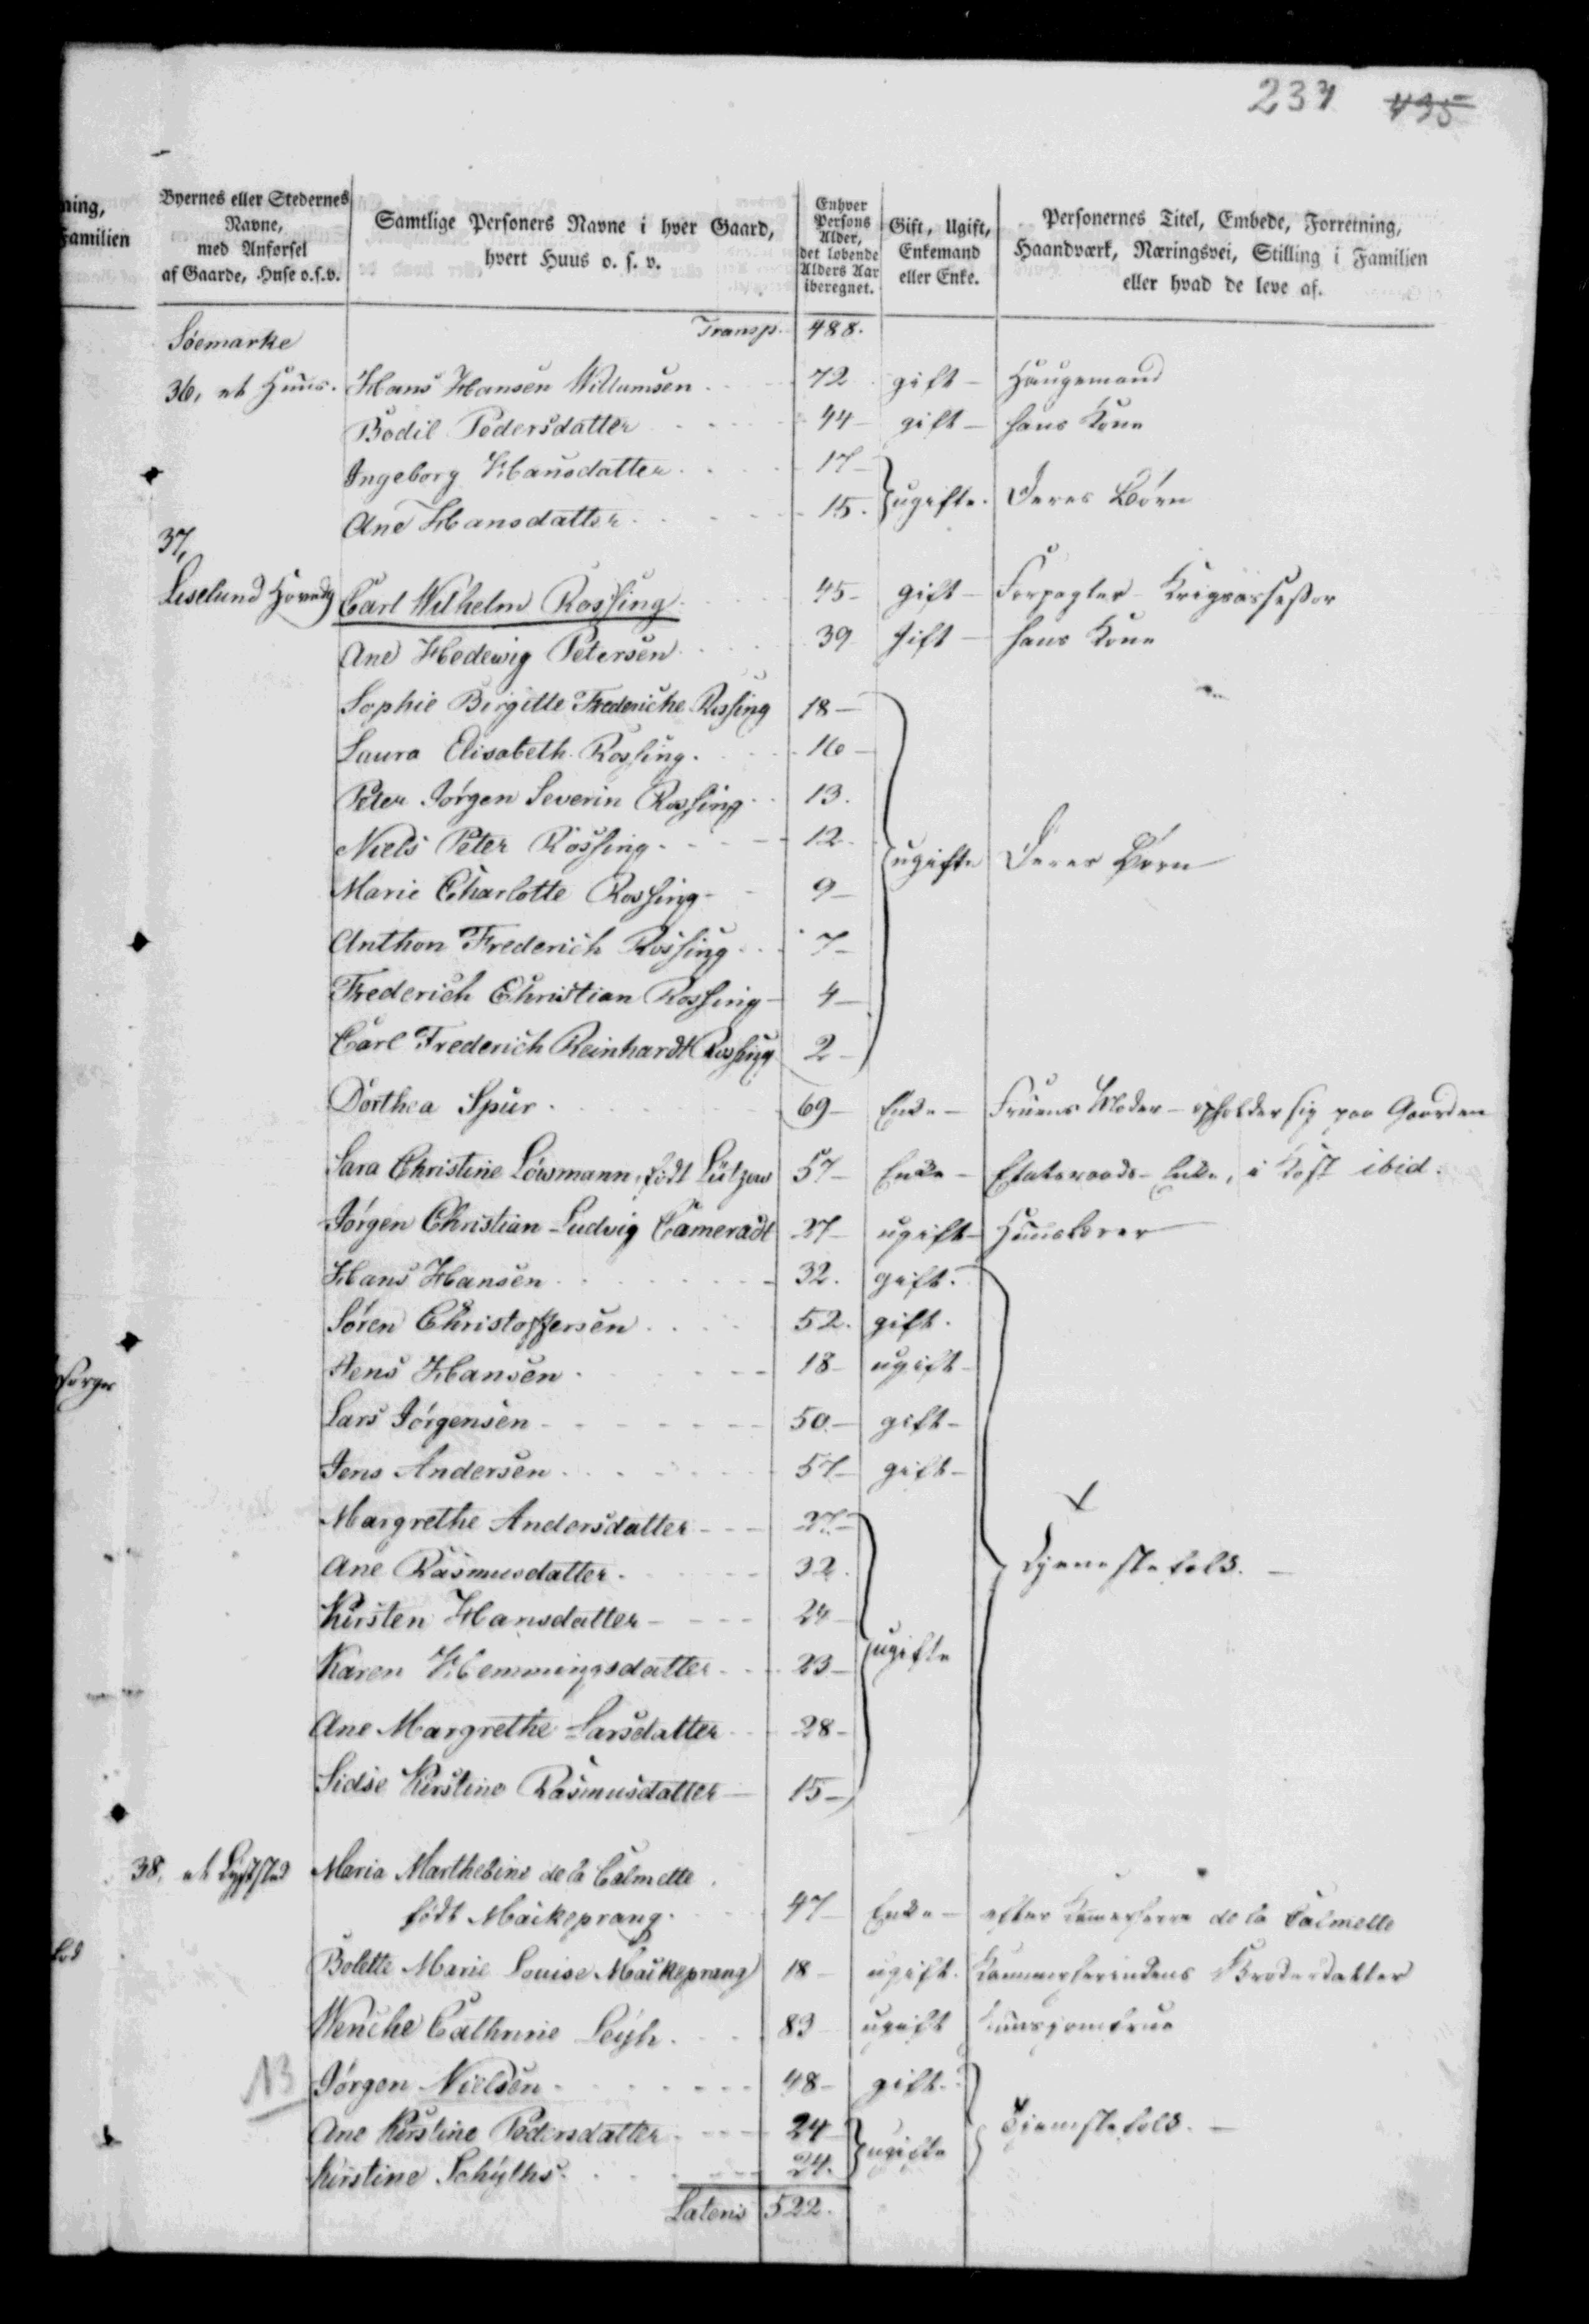 237 435
ning,
Familien
Byernes eller Stedernes Navne, med Anførsel af Gaarde, Huse o.s.v.
Samtlige Personers Navne i hver Gaard, hvert Huus o. s. v.
Enhver Persons Alder, det løbende Alders Aar iberegnet.
Gift, Ugift, Enkemand eller Enke.
Personernes Titel, Embede, Forretning, Haandværk, Næringsvei, Stilling i Familien eller hvad de leve af.
Søemarke Transp. 488.
36, et Huus. Hans Hansen Willumsen 72 gift Huusmand
Bodil Pedersdatter 44 gift hans Kone
Ingeborg Hansdatter 17
Ane Hansdatter 15. ugifte. Deres Børn
37,
Liselund Hovedg Carl Wilhelm Rossing 45 gift Forpagter Krigsassessor
Ane Hedewig Petersen 39 gift hans Kone
Sophie Birgitte Frederiche Rossing 18
Laura Elisabeth Rossing. 16
Peter Jørgen Severin Rossing 13.
Niels Peter Rossing 12 ugifte Deres Børn
Marie Charlotte Rossing 9
Anthon Frederich Rossing 7
Frederich Christian Rossing 4
Carl Frederich Reinhardt Rossing 2
Dorthea Spur 69 Enke Fruens Moder opholder sig paa Gaarden
Sara Christine Löwmann, født Lützow 57 Enke Etatsraads-Enke, i Kost ibid.
Jørgen Christian Ludvig Cameradt 27 ugift Huuslærer
Hans Hansen 32. gift.
Søren Christoffersen 52. gift.
Jens Hansen 18 ugift
Lars Jørgensen 50 gift
Jens Andersen 57 gift
Margrethe Andersdatter 27
Ane Rasmusdatter 32. Tjenestefolk.
Kirsten Hansdatter 24
Karen Hemmingsdatter 23 ugifte
Ane Margrethe Larsdatter 28
Sidse Kirstine Rasmusdatter 15
38, et Lyststed Maria Marthesine de la Calmette
født Mackeprang. 47 Enke efter Kammerherre de la Calmette
Bolette Marie Louise Mackeprang 18 ugift. Kammerherindens Broderdatter
Wenche Cathrine Leyh 83 ugift Huusjomfrue
NB Jørgen Nielsen 48 gift.
Ane Kirstine Pedersdatter 24 ugifte Tjenestefolk.
Kirstine Schyths 24.
Lateris 522.